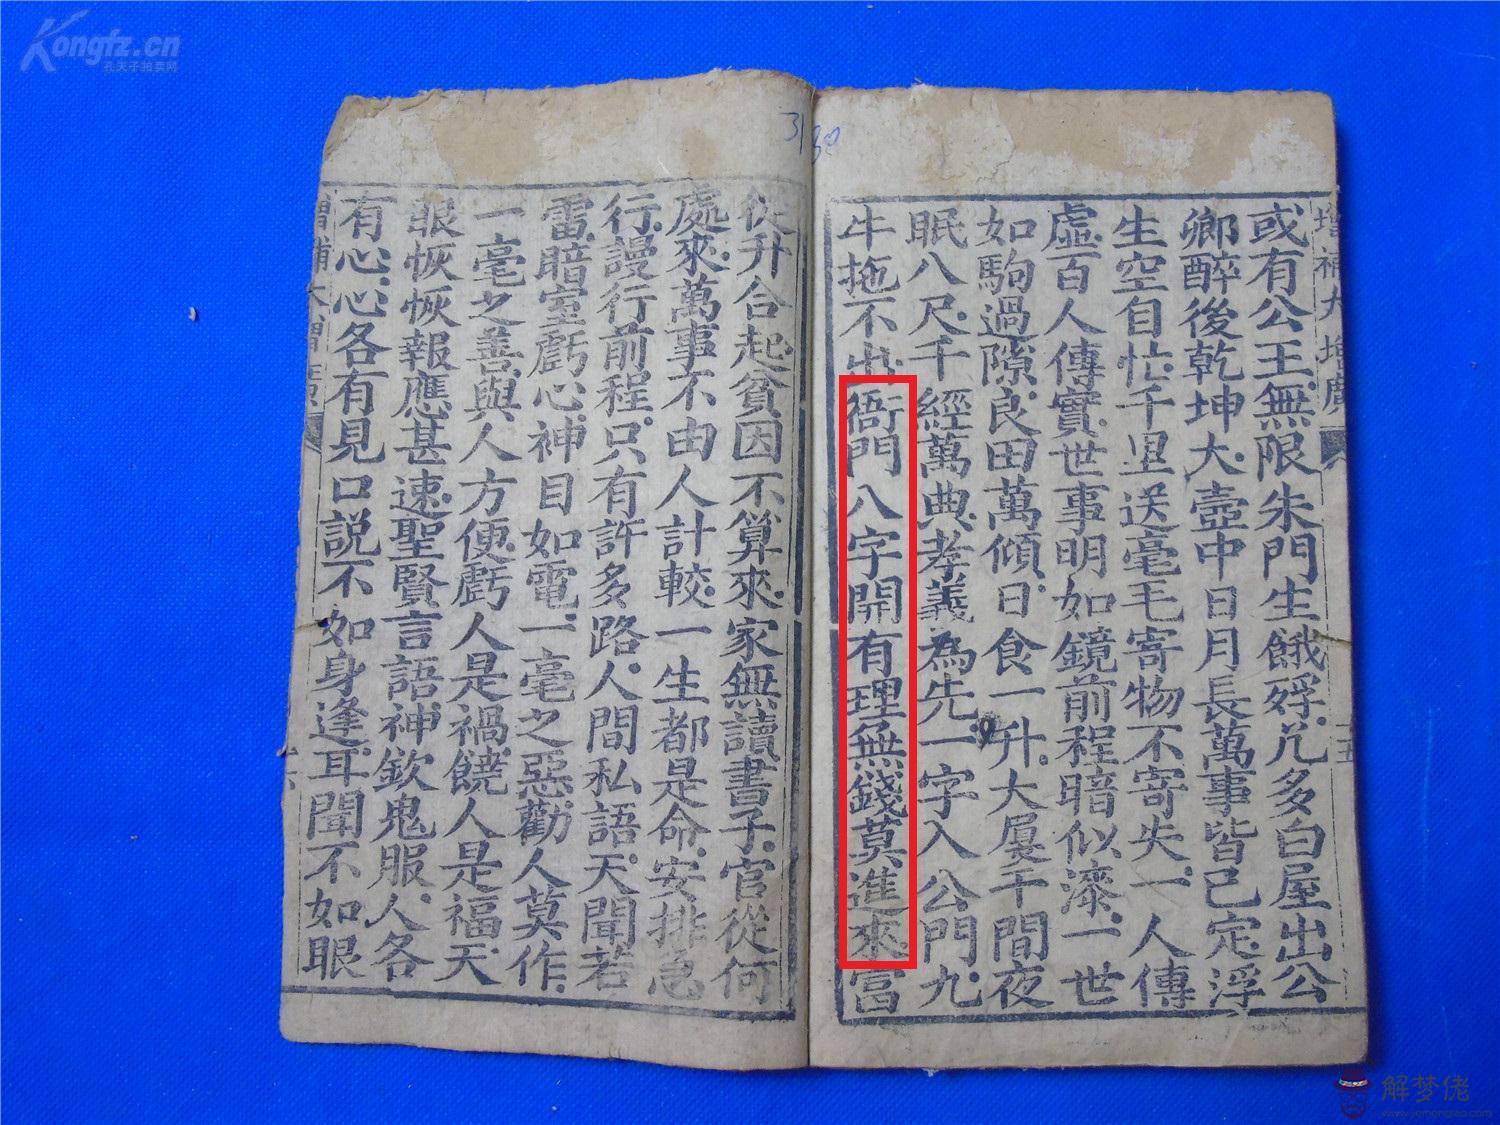 Kongfz.cn
孔夫子拍卖网
31
30
增補大增廣
十五
或有公王.無限朱門生餓殍.凢多白屋出公
卿.醉後乾坤大.壺中日月長.萬事皆已定.浮
生空自忙.千里送毫毛.寄物不寄失.一人傳
虛.百人傳實.世事明如鏡.前程暗似漆.一世
如駒過隙.良田萬傾.日食一升.大厦千間.夜
眠八尺.千經萬典.孝義為先.一字入公門.九
牛拖不出.衙門八字開.有理無錢莫進來.富
從升合起.貧因不算來.家無讀書子.官從何
處來.萬事不由人計較.一生都是命安排.急
行謾行.前程只有許多路.人間私語.天聞若
雷.暗室虧心.神目如電.一毫之惡.勸人莫作.
一毫之善.與人方便.虧人是禍.饒人是福.天
眼恢恢.報應甚速.聖賢言語.神欽鬼服.人各
有心.心各有見.口説不如身逢.耳聞不如眼
解梦佬